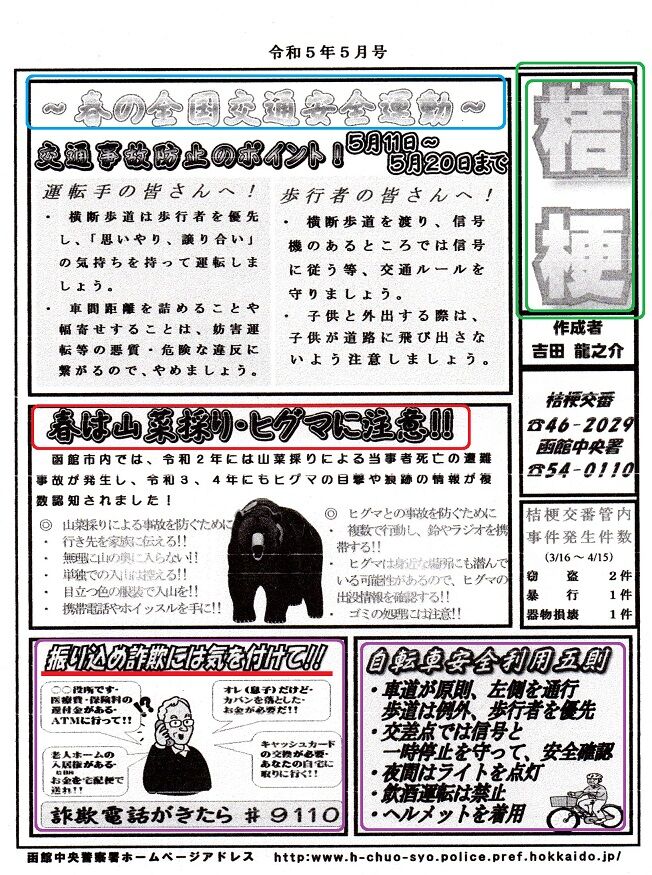 令和５年５月号
～春の全国交通安全運動～
交通事故防止のポイント！
5月11日～
5月20日まで
運転手の皆さんへ！
・ 横断歩道は歩行者を優先
し、「思いやり、譲り合い」
の気持ちを持って運転しま
しょう。
・ 車間距離を詰めることや
幅寄せすることは、妨害運
転等の悪質・危険な違反に
繋がるので、やめましょう。
歩行者の皆さんへ！
・ 横断歩道を渡り、信号
機のあるところでは信号
に従う等、交通ルールを
守りましょう。
・ 子供と外出する際は、
子供が道路に飛び出さな
いよう注意しましょう。
桔梗
作成者
吉田 龍之介
桔梗交番
☎46-2029
函館中央署
☎54-0110
桔梗交番管内
事件発生件数
(3/16 ～ 4/15)
窃 盗 2件
暴 行 1件
器物損壊 1件
春は山菜採り・ヒグマに注意!!
函館市内では、令和２年には山菜採りによる当事者死亡の遭難
事故が発生し、令和３、４年にもヒグマの目撃や痕跡の情報が複
数認知されました！
◎ 山菜採りによる事故を防ぐために
・ 行き先を家族に伝える!!
・ 無理に山の奥に入らない!!
・ 単独での入山は控える!!
・ 目立つ色の服装で入山を!!
・ 携帯電話やホイッスルを手に!!
◎ ヒグマとの事故を防ぐために
・ 複数で行動し、鈴やラジオを携
帯する!!
・ ヒグマは身近な場所にも潜んで
いる可能性があるので、ヒグマの
出没情報を確認する!!
・ ゴミの処理には注意!!
振り込め詐欺には気を付けて!!
〇〇役所です・
医療費・保険料の
還付金がある・
ATMに行って!!
!?
オレ(息子)だけど・
カバンを落とした・
お金が必要だ!!
老人ホームの
入居権がある・
お金を宅配便で
送れ!!
キャッシュカード
の交換が必要・
あなたの自宅に
取りに行く!!
詐欺電話がきたら ＃９１１０
自転車安全利用五則
・車道が原則、左側を通行
歩道は例外、歩行者を優先
・交差点では信号と
一時停止を守って、安全確認
・夜間はライトを点灯
・飲酒運転は禁止
・ヘルメットを着用
函館中央警察署ホームページアドレス http:www.h-chuo-syo.police.pref.hokkaido.jp/